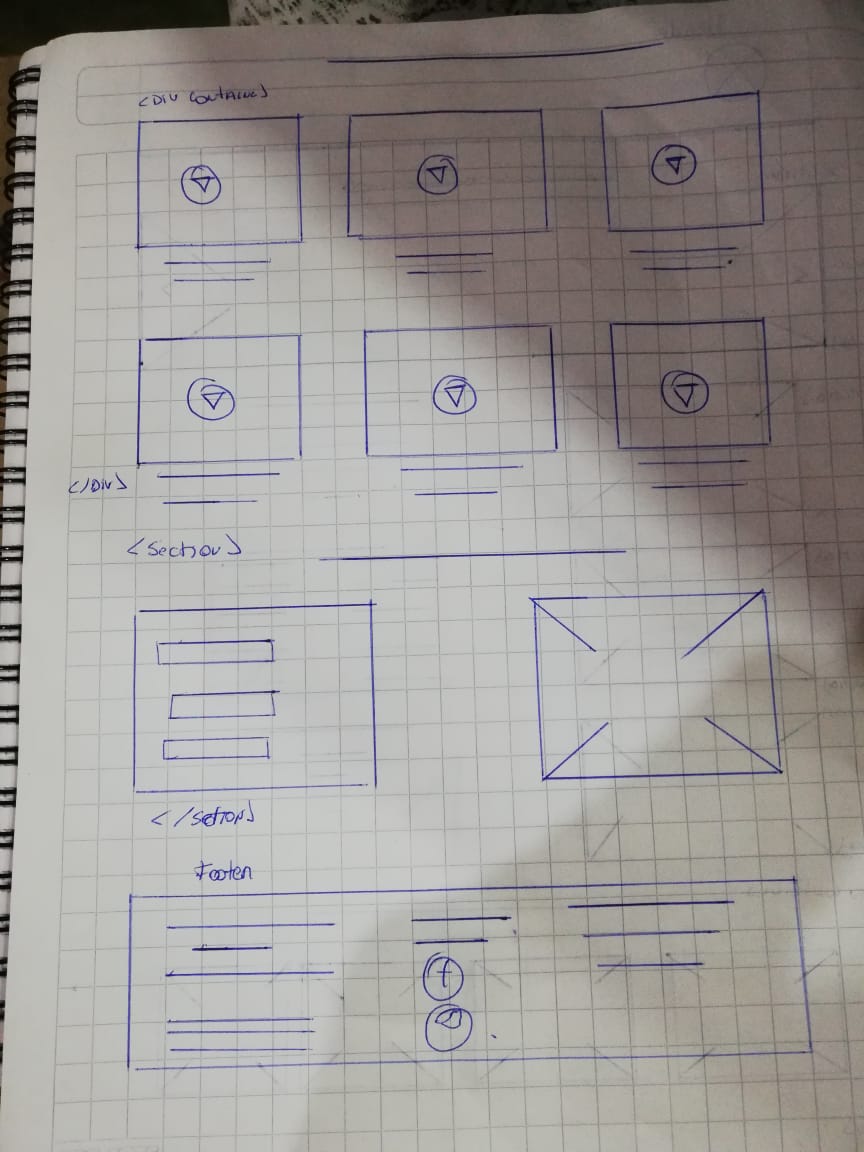 <Div container>
</Div>
<Section>
</Setion>
Footer
f